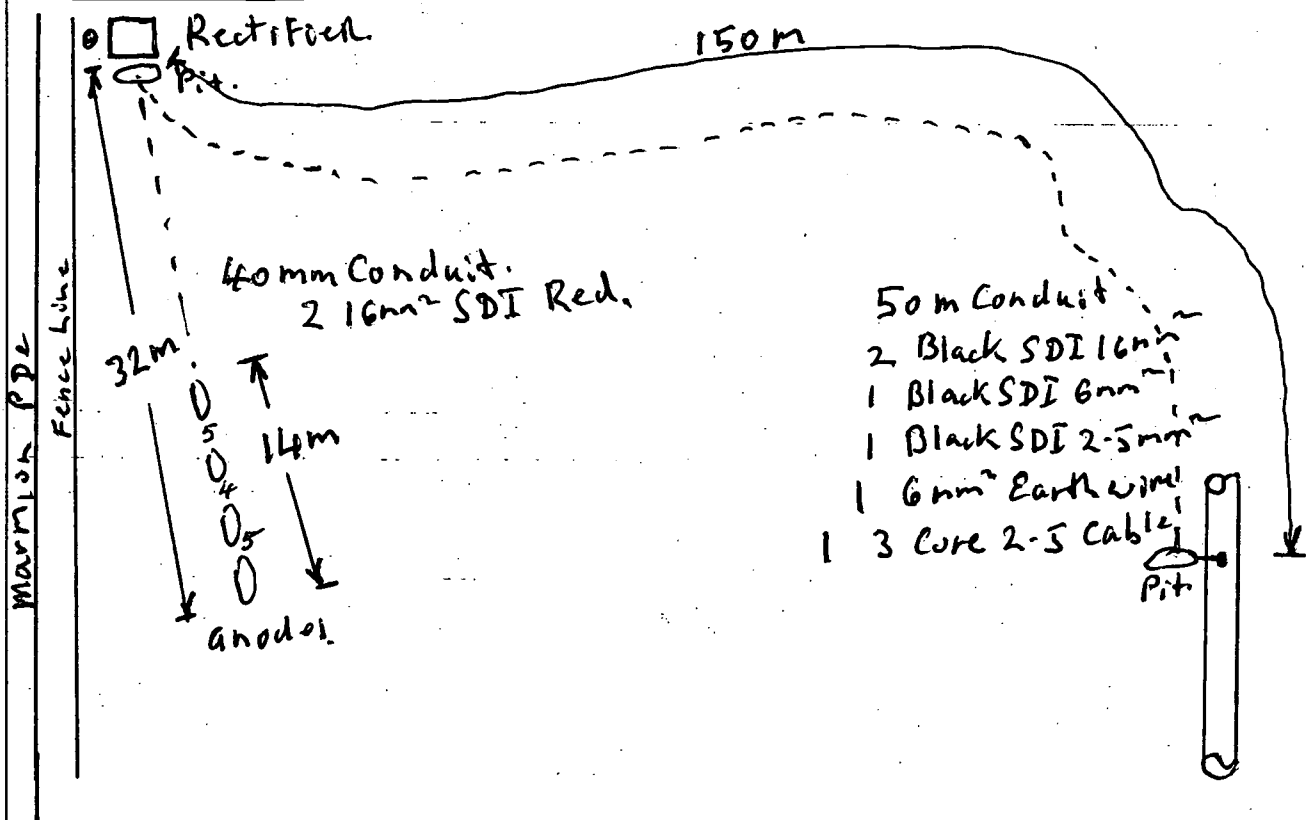 Rectifier.
Pit.
150 m
Fence Line
32m
40mm Conduit.
2 16mm² SDI Red.
14m
5
4
5
anodes.
50 m Conduit
2 Black SDI 16mm²
1 Black SDI 6mm²
1 Black SDI 2-5mm²
1 6mm² Earth wire
1 3 Core 2-5 Cable
Pit.
Marmion PDe